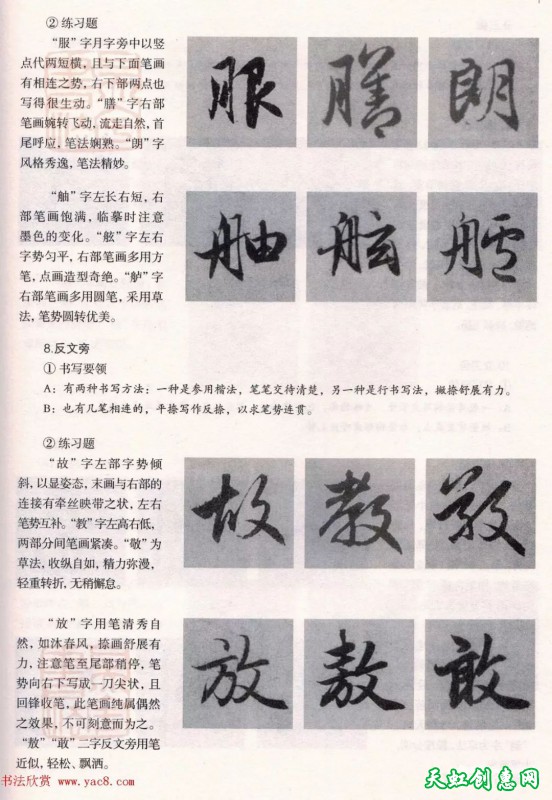 ② 练习题
“服”字月字旁中以竖
点代两短横，且与下面笔画
有相连之势，右下部两点也
写得很生动。“膳”字右部
笔画婉转飞动，流走自然，首
尾呼应，笔法娴熟。“朗”字
风格秀逸，笔法精妙。
服 膳 朗
“舳”字左长右短，右
部笔画饱满，临摹时注意
墨色的变化。“舷”字左右
字势匀平，右部笔画多用方
笔，点画造型奇绝。“舻”字
右部笔画多用圆笔，采用草
法，笔势圆转优美。
舳 舷 艫
8.反文旁
① 书写要领
A：有两种书写方法：一种是参用楷法，笔笔交待清楚，另一种是行书写法，撇捺舒展有力。
B：也有几笔相连的，平捺写作反捺，以求笔势连贯。
② 练习题
“故”字左部字势倾
斜，以显姿态，末画与右部的
连接有牵丝映带之状，左右
笔势互补。“教”字左高右低，
两部分间笔画紧凑。“敬”为
草法，收纵自如，精力弥漫，
轻重转折，无稍懈怠。
故 教 敬
“放”字用笔清秀自
然，如沐春风，捺画舒展有
力，注意笔至尾部稍停，笔
势向右下写成一刀尖状，且
回锋收笔，此笔画纯属偶然
之效果，不可刻意而为之。
“敖”“敢”二字反文旁用笔
近似，轻松、飘洒。
放 敖 敢
书法欣赏 www.yac8.com
天虹创意网